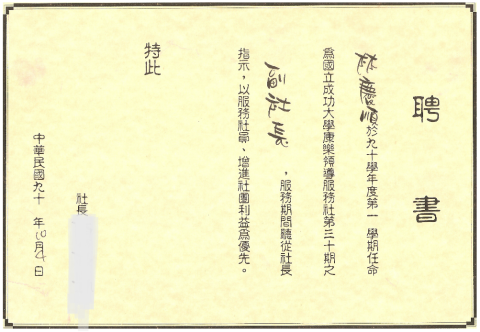 聘書
林慶順於九十學年度第一學期任命
為國立成功大學康樂領導服務社第三十期之
副社長，服務期間聽從社長
指示，以服務社眾、增進社團利益為優先。
特此
社長
中華民國九十 年10月4日